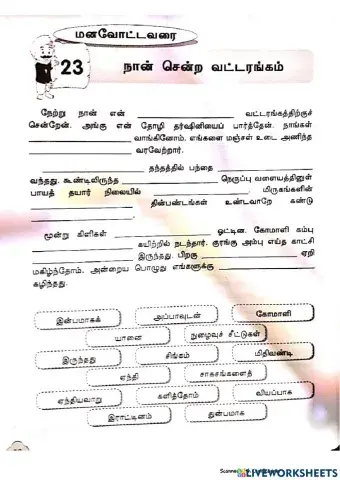 மனவோட்டவரை
23
நான் சென்ற வட்டரங்கம்
நேற்று நான் என் ____________ வட்டரங்கத்திற்குச்
சென்றேன். அங்கு என் தோழி தர்ஷினியைப் பார்த்தேன். நாங்கள்
____________ வாங்கினோம். எங்களை மஞ்சள் உடை அணிந்த
____________ வரவேற்றார்.
____________ தந்தத்தில் பந்தை ____________
வந்தது. கூண்டிலிருந்த ____________ நெருப்பு வளையத்தினுள்
பாயத் தயார் நிலையில் ____________. மிருகங்களின்
____________ தின்பண்டங்கள் உண்டவாறே கண்டு
____________.
மூன்று கிளிகள் ____________ ஓட்டின. கோமாளி கம்பு
____________ கயிற்றில் நடந்தார். குரங்கு அம்பு எய்த காட்சி
____________ இருந்தது. பிறகு ____________ ஏறி
மகிழ்ந்தோம். அன்றைய பொழுது எங்களுக்கு ____________
கழிந்தது.
இன்பமாகக் அப்பாவுடன் கோமாளி
யானை நுழைவுச் சீட்டுகள்
இருந்தது சிங்கம் மிதிவண்டி
ஏந்தி சாகசங்களைத்
ஏந்தியவாறு களித்தோம் வியப்பாக
இராட்டினம் துன்பமாக
LIVEWORKSHEETS